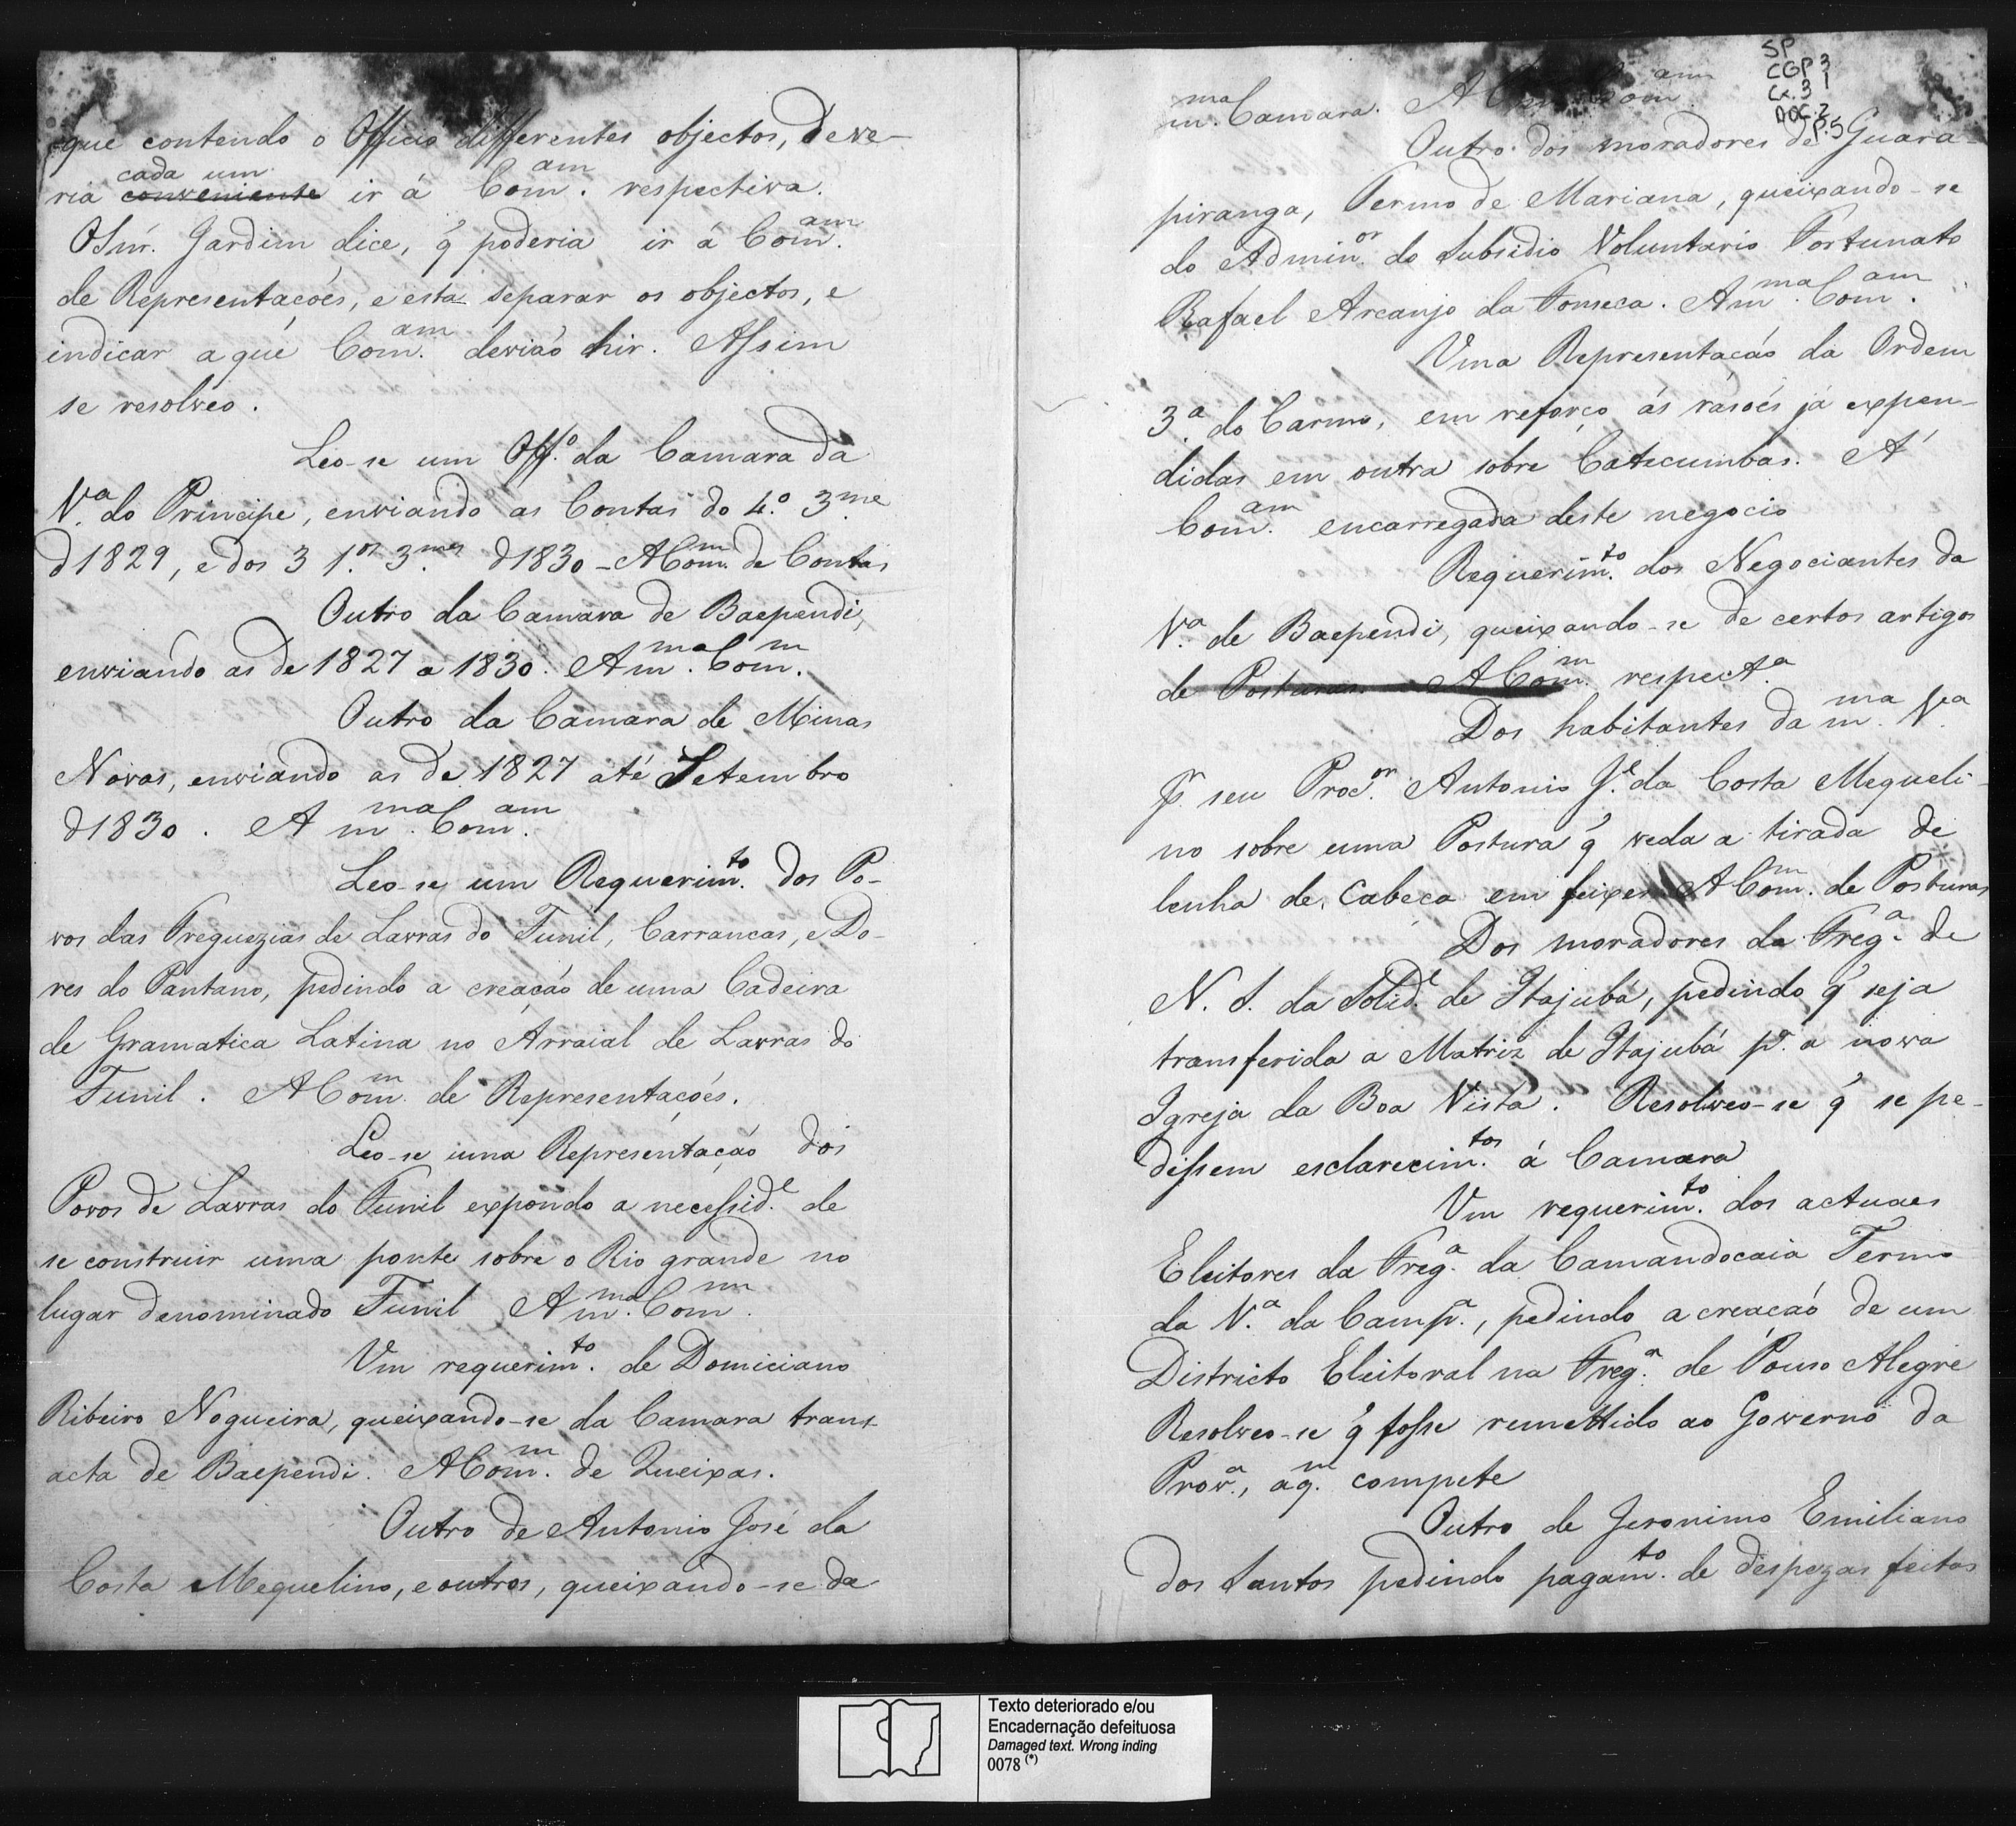 que contendo o Officio differentes objectos, deve-
cada um
ria conveniente ir á Com.am respectiva.
O Snr. Jardim dice, q̃ poderia ir á Com.am
de Representaçoẽs, e esta separar os objectos, e
indicar a que Com.am deviaõ hir. Assim
se resolveo.
Leo-se um Off.o da Camara da
V.a do Principe, enviando as Contas do 4.o 3.me
d'1829, e dos 3 1.os 3.mes d'1830 - A Com.m de Contas
Outro da Camara de Baependi,
enviando as de 1827 a 1830. A m.ma Com.m
Outro da Camara de Minas
Novas, enviando as de 1827 até Setembro
d'1830. A m.ma Com.am
Leo-se um Requerim.to dos Po-
vos das Freguezias de Lavras do Funil, Carrancas, e Do-
res do Pantano, pedindo a creaçaõ de uma Cadeira
de Gramatica Latina no Arraial de Lavras do
Funil. A Com.m de Representaçoẽs.
Leo-se uma Representaçaõ dos
Povos de Lavras do Funil expondo a necessid.e de
se construir uma ponte sobre o Rio grande no
lugar denominado Funil A m.ma Com.m
Um requerim.to de Domiciano
Ribeiro Nogueira, queixando-se da Camara trans-
acta de Baependi. A Com.m de Queixas.
Outro de Antonio José da
Costa Mequelino, e outros, queixando-se da
SP
CGP 3
Cx. 3 1
DOC. 2
P. 5
m.ma Camara. A Com.am
Outro dos moradores de Guara-
piranga, Termo de Mariana, queixando-se
do Admin.or do Subsidio Voluntario Fortunato
Rafael Arcanjo da Fonseca. A m.ma Com.am
Uma Representaçaõ da Ordem
3.a do Carmo, em reforço ás rasoẽs já expen-
didas em outra sobre Catecumbas. A'
Com.am encarregada deste negocio
Requerim.to dos Negociantes da
V.a de Baependi, queixando-se de certos artigos
de Posturas. A Com.m respect.a
Dos habitantes da m.ma V.a
p.r seu Proc.or Antonio J.e da Costa Mequeli-
no sobre uma Postura q̃ veda a tirada de
lenha de Cabeça em feixes A Com.m de Posturas
Dos moradores da Freg.a de
N. S. da Solid.e de Itajubá, pedindo q̃ seja
transferida a Matriz de Itajubá p.a a nova
Igreja da Boa Vista. Resolveo-se q̃ se pe-
dissem esclarecim.tos á Camara
Um requerim.to dos actuaes
Eleitores da Freg.a da Camandocaia Termo
da V.a da Camp.a, pedindo a creaçaõ de um
Districto Eleitoral na Freg.a de Pouso Alegre
Resolveo-se q̃ fosse remettido ao Governo da
Prov.a, a q.m compete
Outro de Jeronimo Emiliano
dos Santos pedindo pagam.to de despezas feitas
Texto deteriorado e/ou
Encadernação defeituosa
Damaged text. Wrong inding
0078 (*)